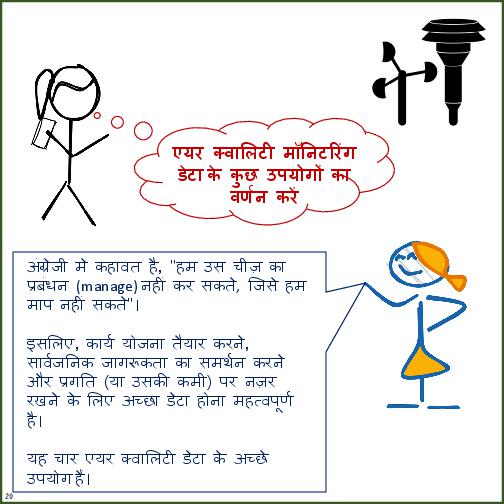 एयर क्वालिटी मॉनिटरिंग
डेटा के कुछ उपयोगों का
वर्णन करें
अंग्रेजी मे कहावत है, "हम उस चीज़ का
प्रबंधन (manage) नहीं कर सकते, जिसे हम
माप नहीं सकते"।
इसलिए, कार्य योजना तैयार करने,
सार्वजनिक जागरूकता का समर्थन करने
और प्रगति (या उसकी कमी) पर नज़र
रखने के लिए अच्छा डेटा होना महत्वपूर्ण
है।
यह चार एयर क्वालिटी डेटा के अच्छे
उपयोग हैं।
20